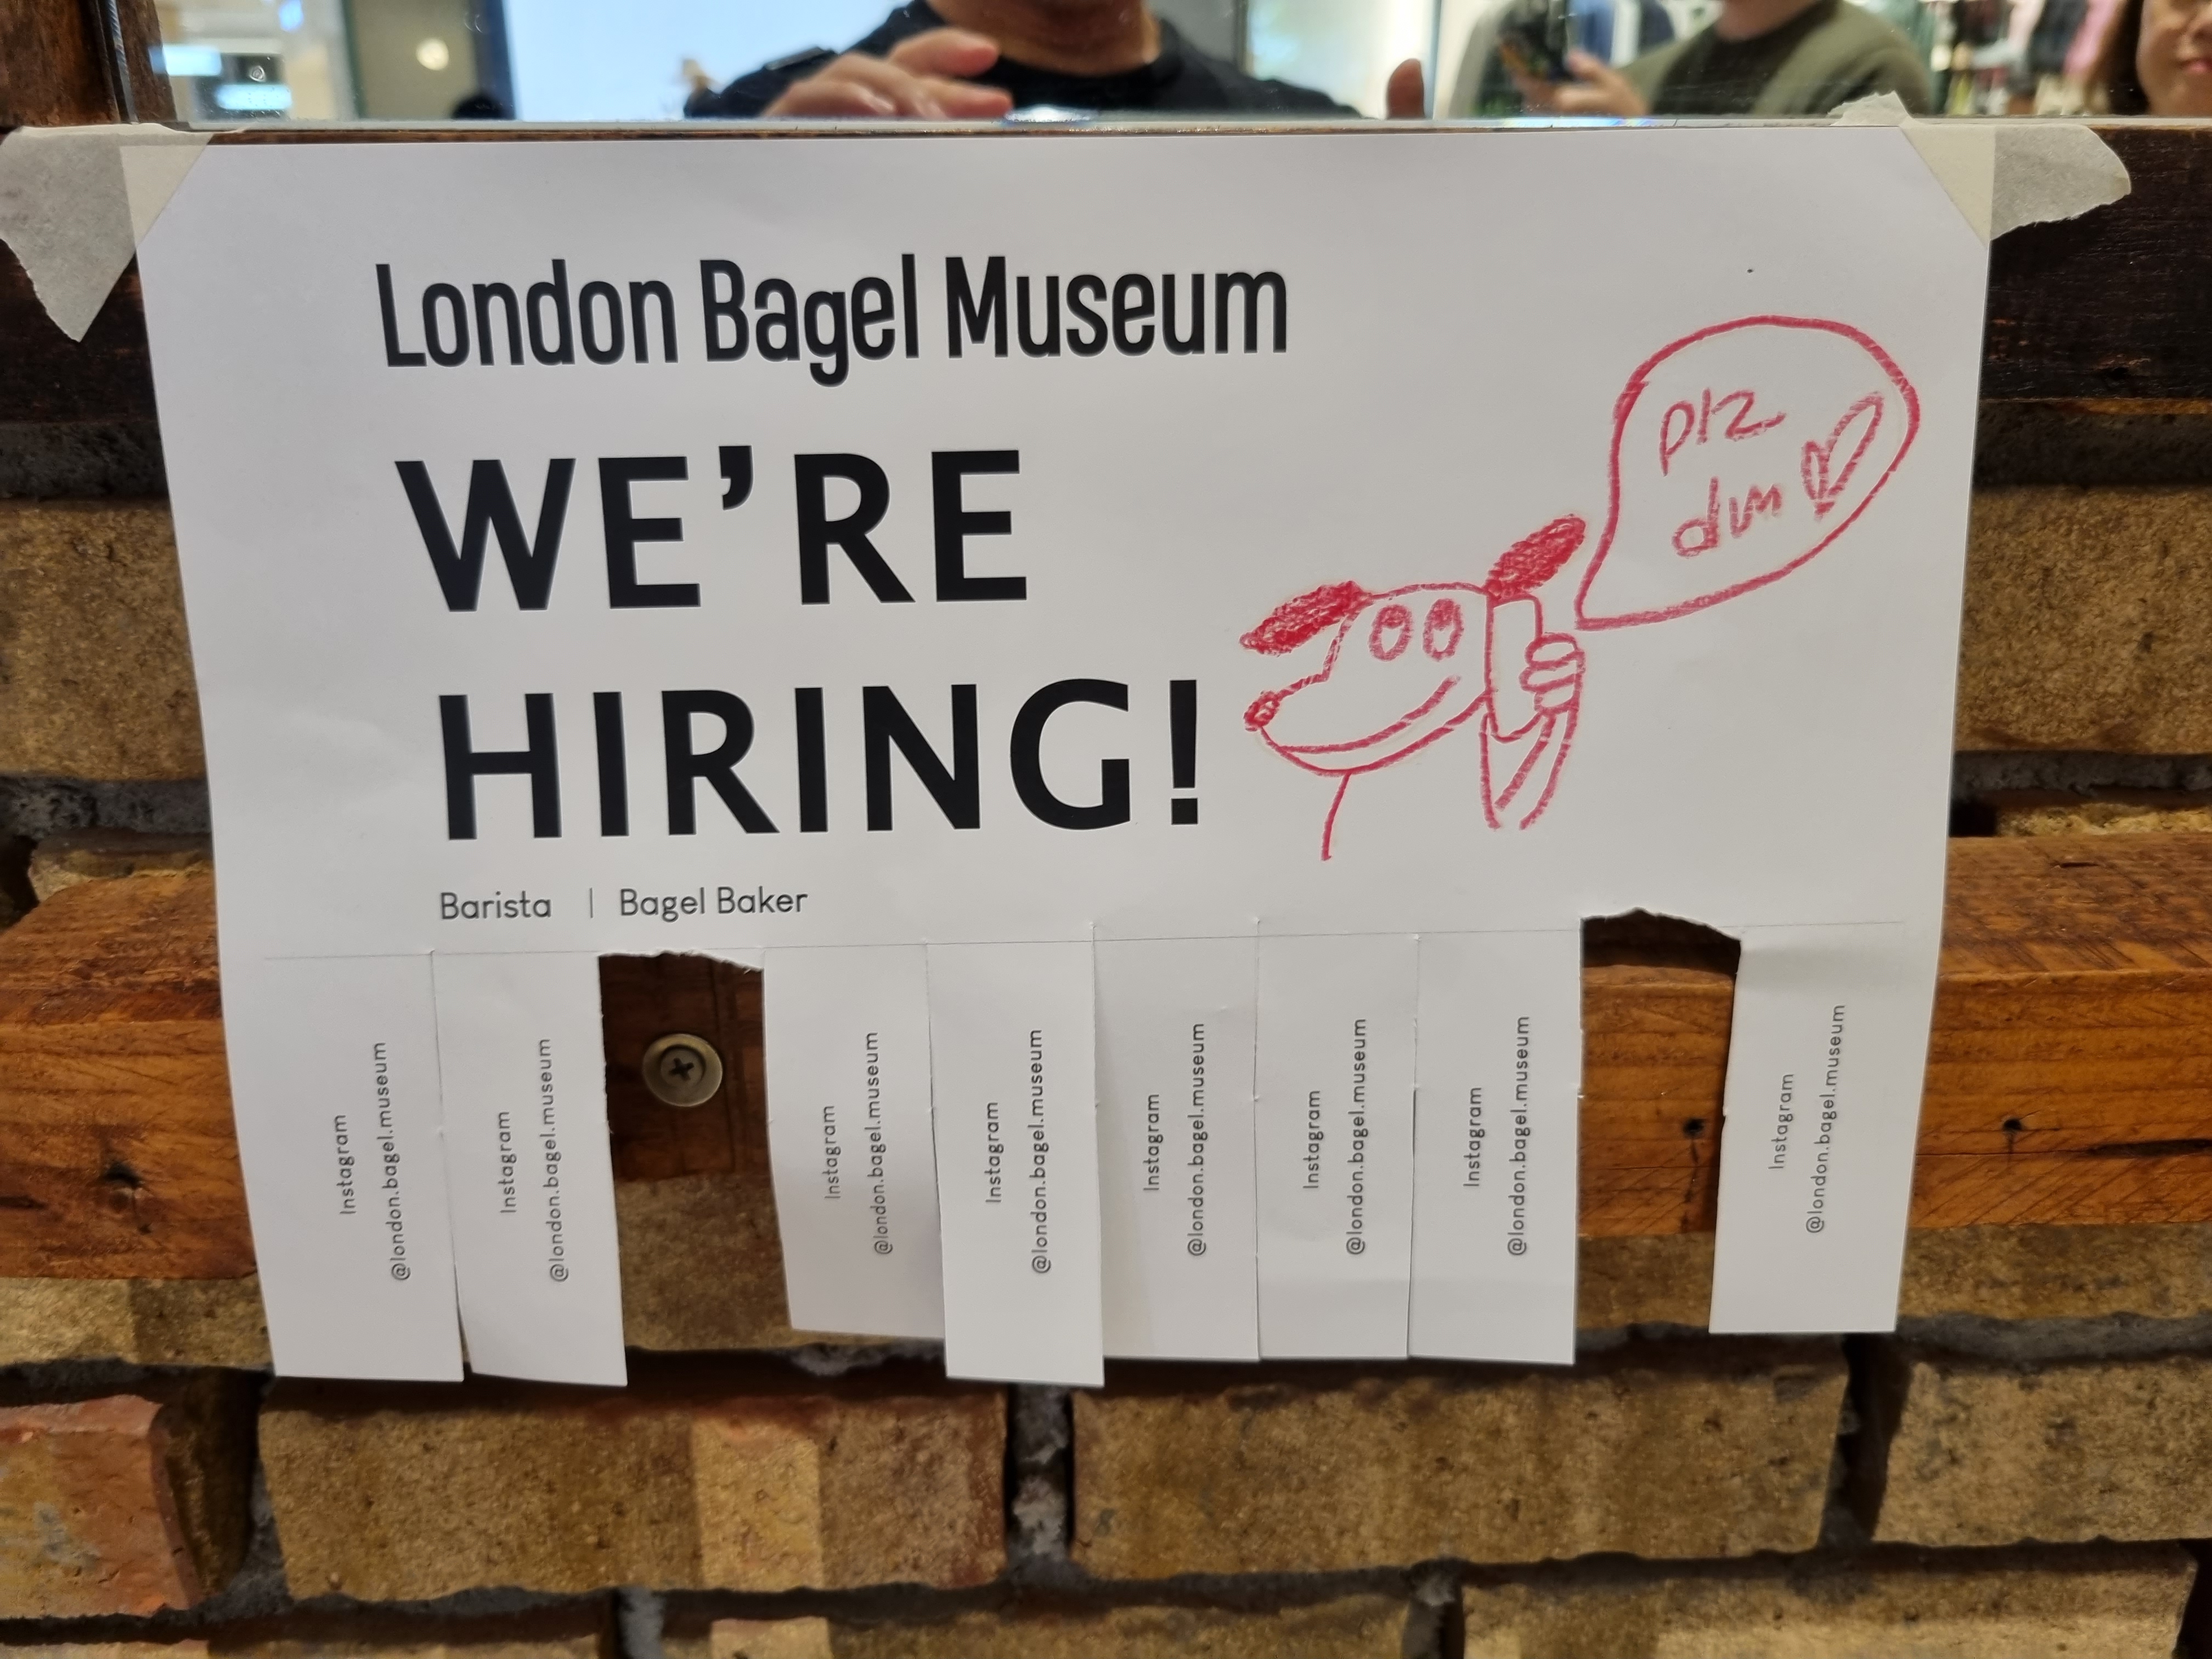 London Bagel Museum
WE'RE
HIRING!
plz
dm
Barista | Bagel Baker
Instagram
@london.bagel.museum
Instagram
@london.bagel.museum
Instagram
@london.bagel.museum
Instagram
@london.bagel.museum
Instagram
@london.bagel.museum
Instagram
@london.bagel.museum
Instagram
@london.bagel.museum
Instagram
@london.bagel.museum